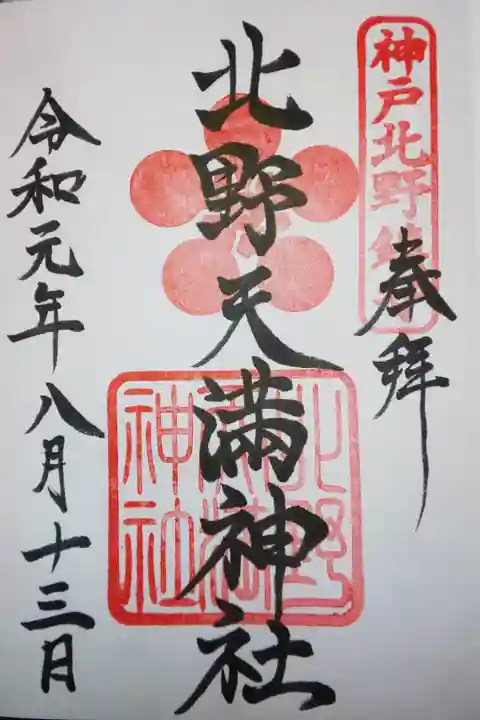 神戸北野鎮守
奉拝
北野天満神社
北野天満神社
令和元年八月十三日